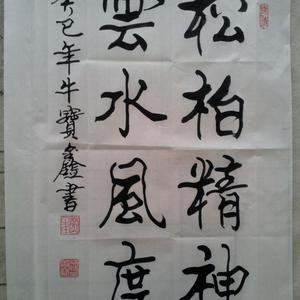 松柏精神
雲水風度
癸巳年牛寶鑫書